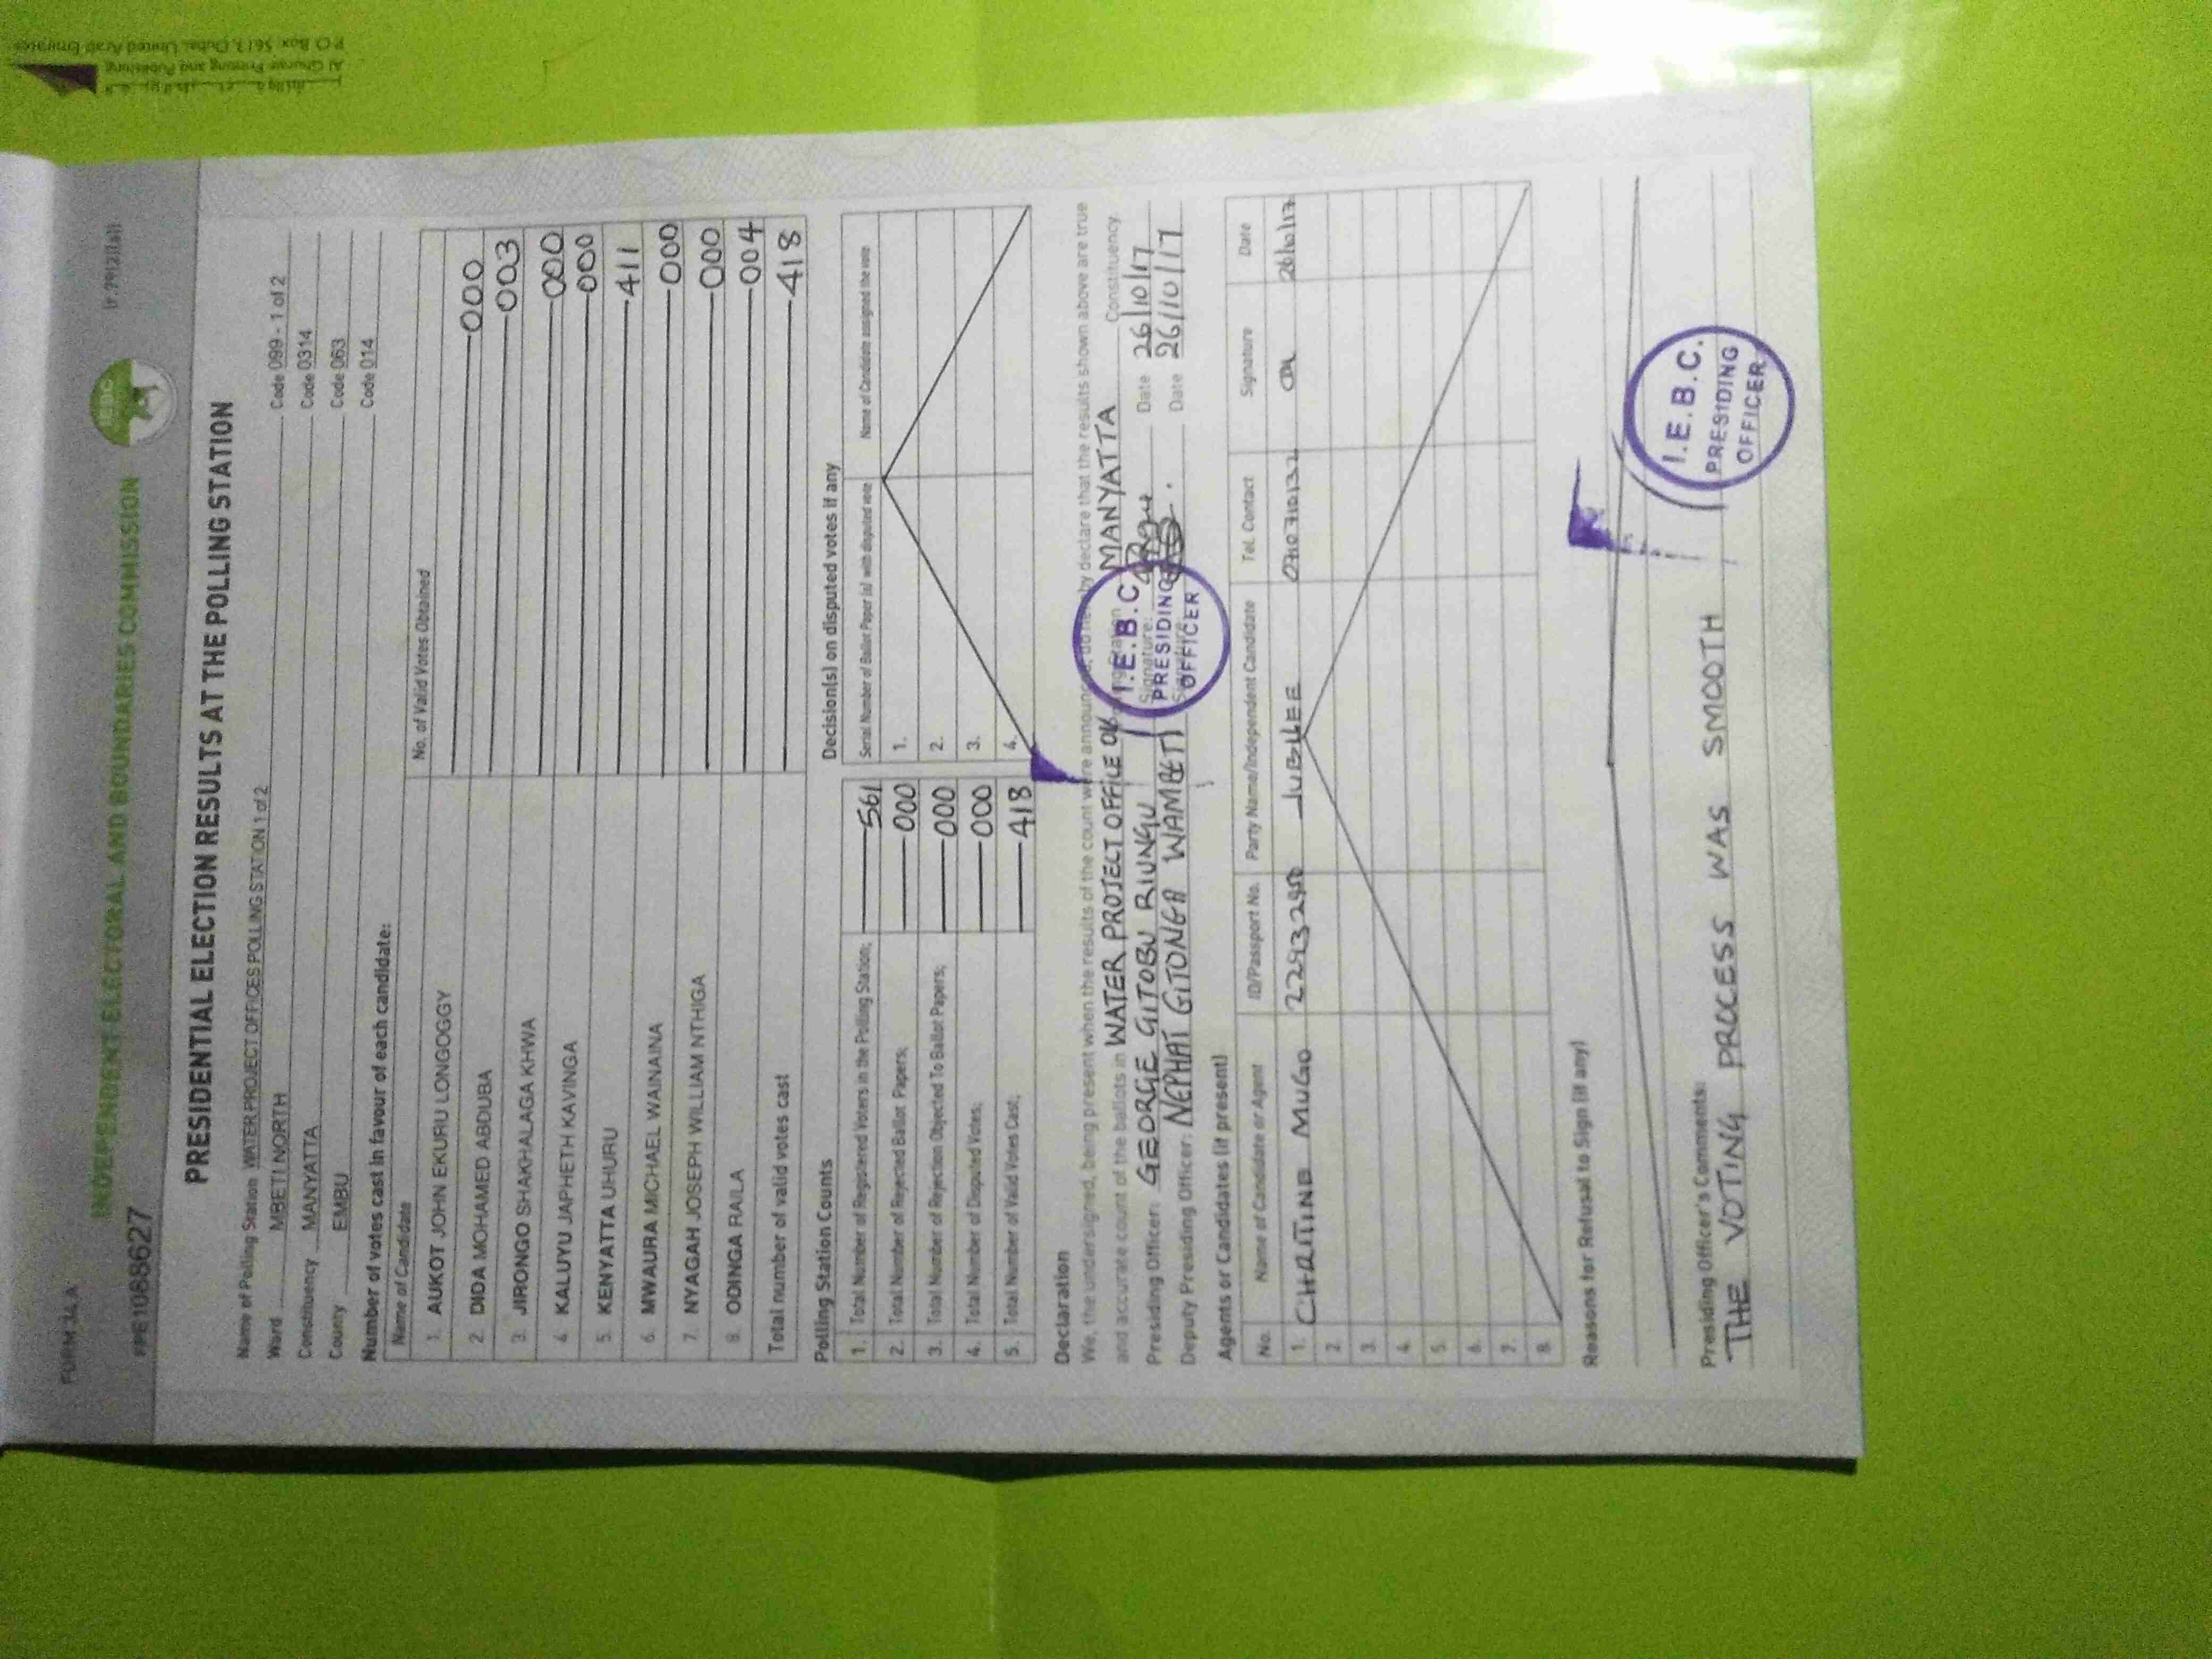 FORM 34A
(r.79(2)(a))
INDEPENDENT ELECTORAL AND BOUNDARIES COMMISSION
IEBC
PRESIDENTIAL ELECTION RESULTS AT THE POLLING STATION
Name of Polling Station WATER PROJECT OFFICES POLLING STATION 1 of 2 Code 099 - 1 of 2
Ward MBETI NORTH Code 0314
Constituency MANYATTA Code 063
County EMBU Code 014
Number of votes cast in favour of each candidate:
Name of Candidate No. of Valid Votes Obtained
1. AUKOT JOHN EKURU LONGOGGY 000
2 DIDA MOHAMED ABDUBA 003
3. JIRONGO SHAKHALAGA KHWA 000
4 KALUYU JAPHETH KAVINGA 000
5. KENYATTA UHURU 411
6. MWAURA MICHAEL WAINAINA 000
7. NYAGAH JOSEPH WILLIAM NTHIGA 000
8. ODINGA RAILA 004
Total number of valid votes cast 418
Polling Station Counts
1. Total Number of Registered Voters in the Polling Station; 561
2. Total Number of Rejected Ballot Papers; 000
3. Total Number of Rejection Objected To Ballot Papers; 000
4. Total Number of Disputed Votes; 000
5. Total Number of Valid Votes Cast; 418
Decision(s) on disputed votes if any
Serial Number of Ballot Paper (s) with disputed vote Name of Candidate assigned the vote
1.
2.
3.
4.
Declaration
We, the undersigned, being present when the results of the count were announced, do hereby declare that the results shown above are true
and accurate count of the ballots in WATER PROJECT OFFICE MANYATTA Constituency
Presiding Officer: GEORGE GITOBU RIUNGU Signature: Date 26/10/17
Deputy Presiding Officer: NEPHAT GITONGA WAMBETI Signature Date 26/10/17
I.E.B.C.
PRESIDING
OFFICER
Agents or Candidates (if present)
No. Name of Candidate or Agent ID/Passport No. Party Name/Independent Candidate Tel. Contact Signature Date
1. CHRITINE MUGO 22932950 JUBILEE 070710132 26/10/17
2.
3.
4.
5.
6.
7.
8.
Reasons for Refusal to Sign (if any)
Presiding Officer's Comments:
THE VOTING PROCESS WAS SMOOTH
I.E.B.C.
PRESIDING
OFFICER
Al Ghurair Printing and Publishing
P.O Box: 5613, Dubai, United Arab Emirates